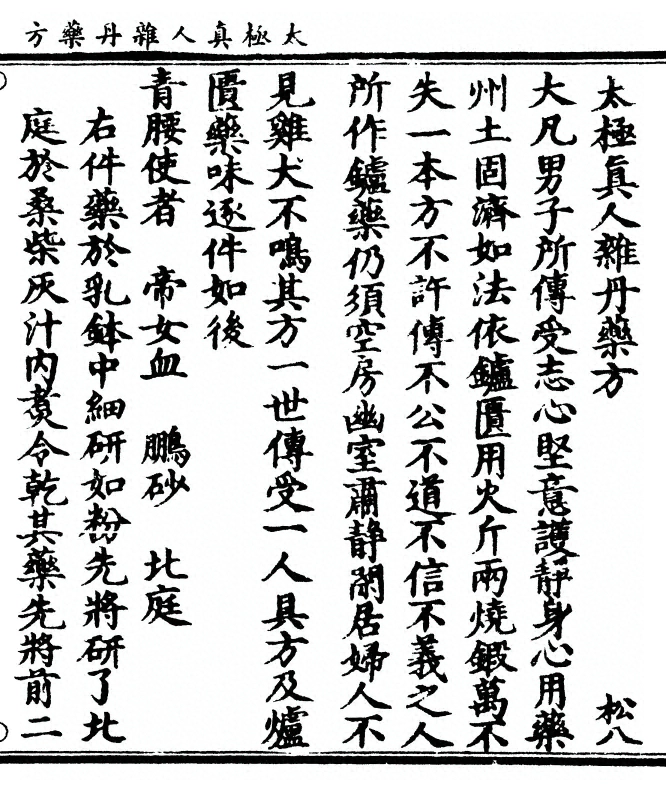 太極真人雜丹藥方
太極眞人雜丹藥方 松八
大凡男子所傳受志心堅意護靜身心用藥
州土固濟如法依鑪匱用火斤兩燒鍛萬不
失一本方不許傳不公不道不信不義之人
所作鑪藥仍須空房幽室肅靜閑居婦人不
見雞犬不鳴其方一世傳受一人具方及爐
匱藥味逐件如後
青腰使者 帝女血 鵬砂 北庭
右件藥於乳鉢中細研如粉先將研了北
庭於桑柴灰汁內煑令乾其藥先將前二